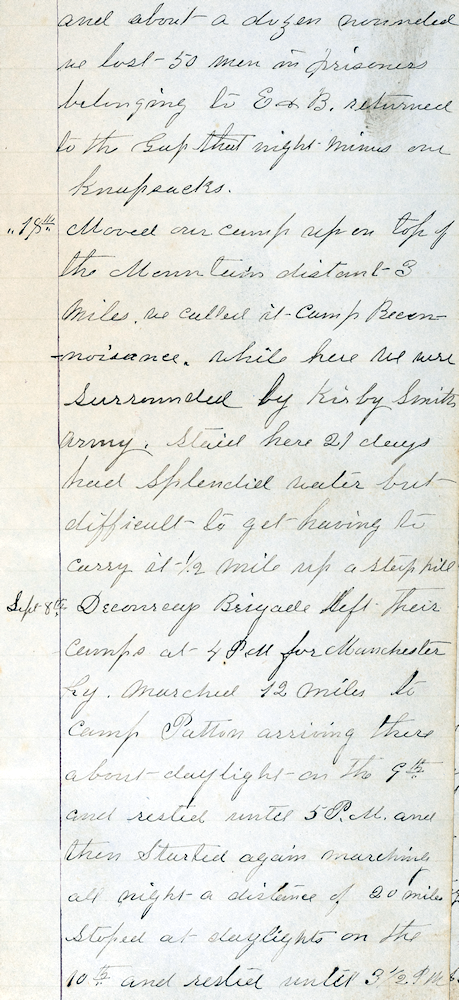 and about a dozen wounded
we lost 50 men in prisoners
belonging to E & B. returned
to the Gap that night minus our
Knapsacks.
" 18th Moved our camp up on top of
the Mountain distant 3
Miles. we called it Camp Recon-
noisance. while here we were
Surrounded by Kirby Smith
Army. Staid here 21 days
had Splendid water but
difficult to get having to
carry it 1/2 mile up a steep hill
Sept 8th Decourcey Brigade left their
Camps at 4 P.M for Manchester
Ky. Marched 12 miles to
Camp Patton arriving there
about daylight on the 9th
and rested until 5 P.M. and
then Started again marching
all night a distance of 20 miles
stoped at daylights on the
10th and rested until 3 1/2 P M